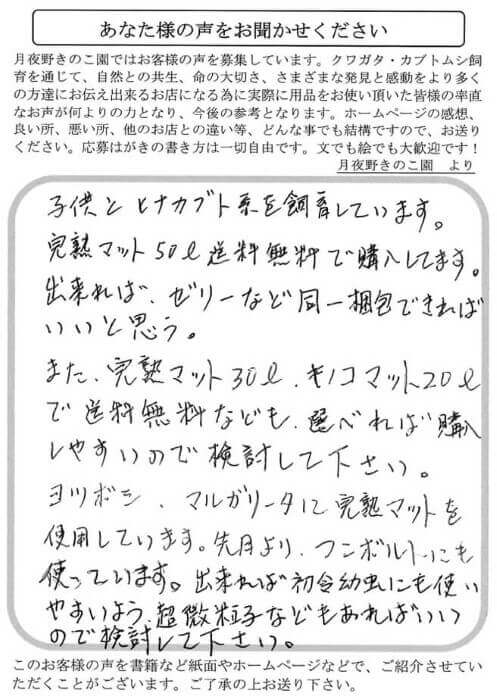 あなた様の声をお聞かせください
月夜野きのこ園ではお客様の声を募集しています。クワガタ・カブトムシ飼
育を通じて、自然との共生、命の大切さ、さまざまな発見と感動をより多く
の方達にお伝え出来るお店になる為に実際に用品をお使い頂いた皆様の率直
なお声が何よりの力となり、今後の参考となります。ホームページの感想、
良い所、悪い所、他のお店との違い等、どんな事でも結構ですので、お送り
ください。応募はがきの書き方は一切自由です。文でも絵でも大歓迎です！
月夜野きのこ園　より
子供とヒナカブト系を飼育しています。
完熟マット50ℓ送料無料で購入してます。
出来れば、ゼリーなど同一梱包できれば
いいと思う。
また、完熟マット30ℓ、キノコマット20ℓ
で送料無料なども、選べれば購入
しやすいので検討して下さい。
ヨツボシ、マルガリータに完熟マットを
使用しています。先月より、フンボルトにも
使っています。出来れば初令幼虫にも使い
やすいよう、超微粒子などもあればいい
ので検討して下さい。
このお客様の声を書籍など紙面やホームページなどで、ご紹介させてい
ただくことがございます。ご了承の上お送り下さい。